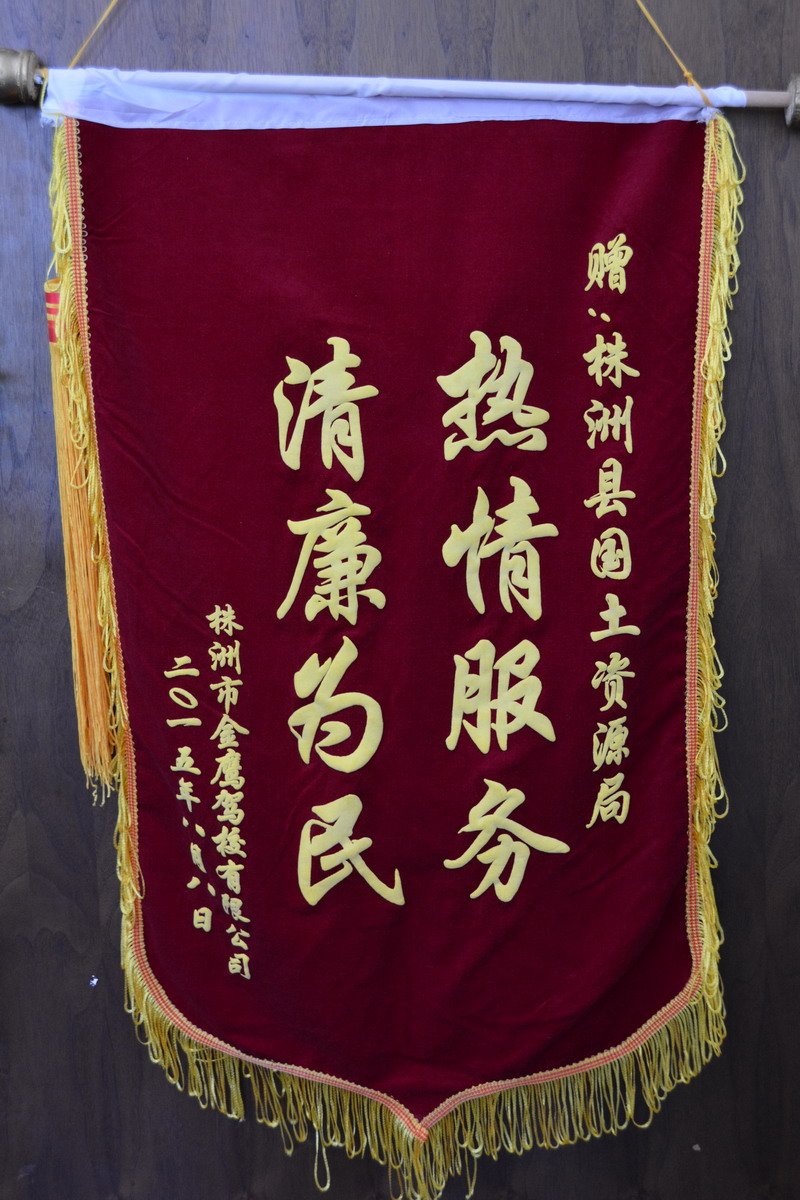 赠:株洲县国土资源局
热情服务
清廉为民
株洲市金鹰驾校有限公司
二〇一五年八月八日